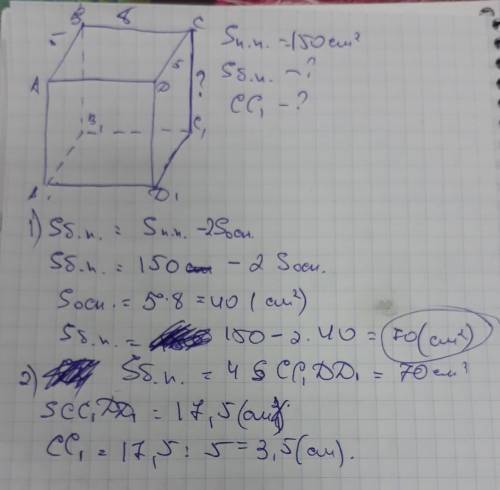 B 8 C
5
A D 5 ?
B₁ C₁
A₁ D₁
Sп.п. = 150 см²
Sб.п. - ?
CC₁ - ?
1) Sб.п. = Sп.п. - 2Sосн.
Sб.п. = 150 - 2 Sосн.
Sосн. = 5·8 = 40 (см²)
Sб.п. = 150 - 2·40 = 70 (см²)
2) Sб.п. = 4 S CC₁DD₁ = 70 см²
SCC₁DD₁ = 17,5 (см²)
CC₁ = 17,5 : 5 = 3,5 (см).